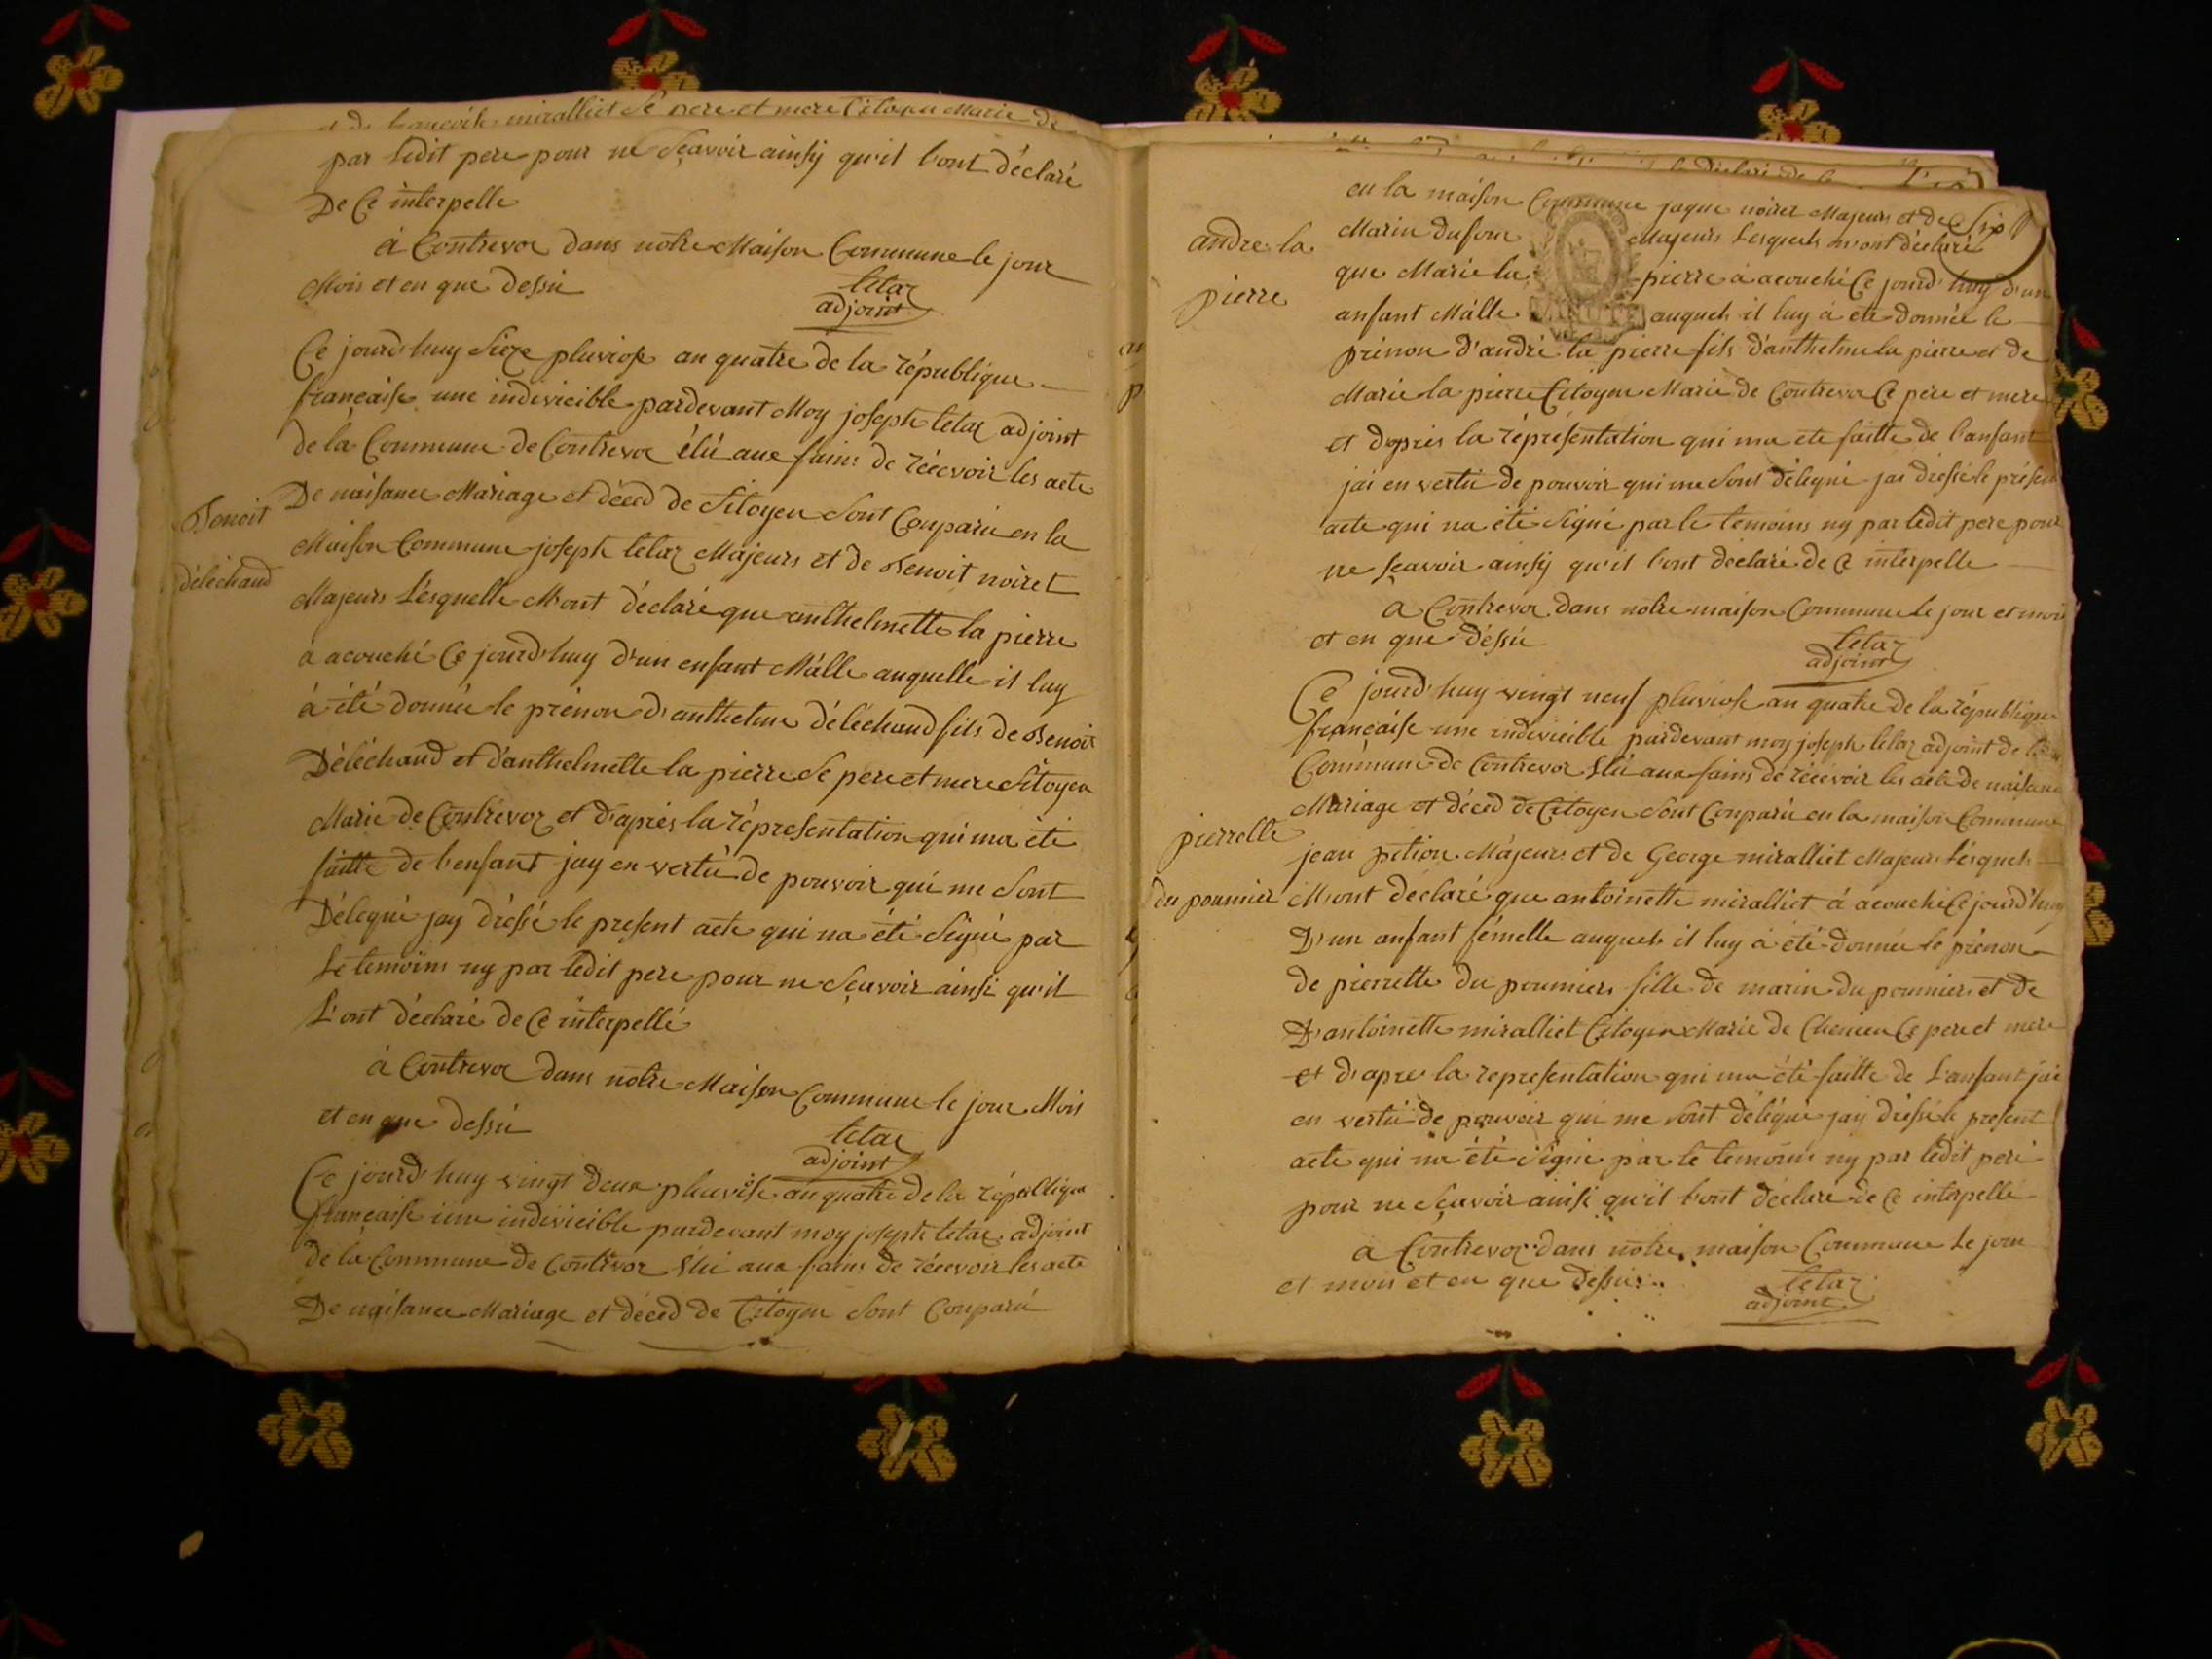 miralliet Se pere et mere Citoyen Marie de
par Ledit pere pour ne Sçavoir ainsÿ qu'il l'ont déclaré
De Ce interpelle
à Contrevoz dans notre Maison Commune le jour
Mois et en que dessu
letaz
adjoint
Ce jourd'huy Sieze pluviose an quatre de la république
française une indivicible pardevant Moy joseph letaz adjoint
de la Commune de Contrevoz élû aux fains de récevoir les acte
De naisance Mariage et déced de Sitoyen Sont Conparu en la
Benoit
déléchaud
Maison Commune joseph letaz Majeurs et de Benoit noiret
Majeurs Lésquelle M'ont déclaré que anthelmette la pierre
a acouché Ce jourd'huy d'un enfant Mâlle auquelle il luy
à été donnée le prénon d'anthelme déléchaud fils de Benoit
Déléchaud et d'anthelmette la pierre Se pere et mere Sitoyen
Marie de Contrevoz et d'aprés la répresentation qui ma été
faitte de l'enfant jay en vertû de pouvoir qui me Sont
Délegué jay dréssé le present acte qui na été Signé par
Le temoins ny par ledit pere pour ne Sçavoir ainsi qu'il
L'ont déclaré de Ce interpellé
à Contrevoz dans notre Maison Commune le jour Mois
et en que dessu
letaz
adjoint
Ce jourd'huy vingt deux pluviose an quatre de la république
française une indivicible pardevant moy joseph letaz adjoint
de la Commune de Contrevoz élû aux fains de récevoir les acte
De naisance Mariage et déced de Citoyen Sont Conparû
en la maison Commune jaque noiret Majeurs et de
Six
andre la
pierre
Marin dufour Majeurs Lesquels m'ont déclaré
que Marie la pierre à acouché Ce jourd'huy d'un
anfant Mâlle auquels il luy à été donnée le
prénon d'andré la pierre fils d'anthelme la pierre et de
Marie la pierre Citoyen Marie de Contrevoz Ce pere et mere
et d'aprés la répréséntation qui ma eté faitte de l'anfant
jai en vertû de pouvoir qui me Sont délegué jai dressé le présen
acte qui na été Signé par le temoins ny par ledit pere pour
ne Sçavoir ainsÿ qu'il l'ont déclaré de Ce interpelle
a Contrevoz dans notre maison Commune le jour et moi
et en que déssu
letaz
adjoint
Ce jourd'huy vingt neuf pluviose an quatre de la république
française une indivicible pardevant moy joseph letaz adjoint de
Commune de Contrevoz élû aux fains de récevoir les acte de naisance
Mariage et déced de Citoyen Sont Conparu en la maison Commune
pierrette
du poumier
jean pition Majeurs et de George miralliet Majeurs Lésquels
M'ont déclaré que antoinette miralliet à acouché Ce jourd'huy
D'un anfant fémelle auquels il luy à été donnée le prénon
de pierrette du poumiers fille de marin du poumiers et de
D'antoinette miralliet Citoyen Marie de Ce pere et mere
et d'apre la représentation qui ma été faitte de L'anfant jai
en vertû de pouvoir qui me Sont délégué jay dréssé le présent
acte qui na été Signé par le temoins ny par ledit pere
pour ne Sçavoir ainsi qu'il l'ont déclaré de Ce interpellé
a Contrevoz dans notre maison Commune Le jour
et mois et en que dessu
letaz
adjoint